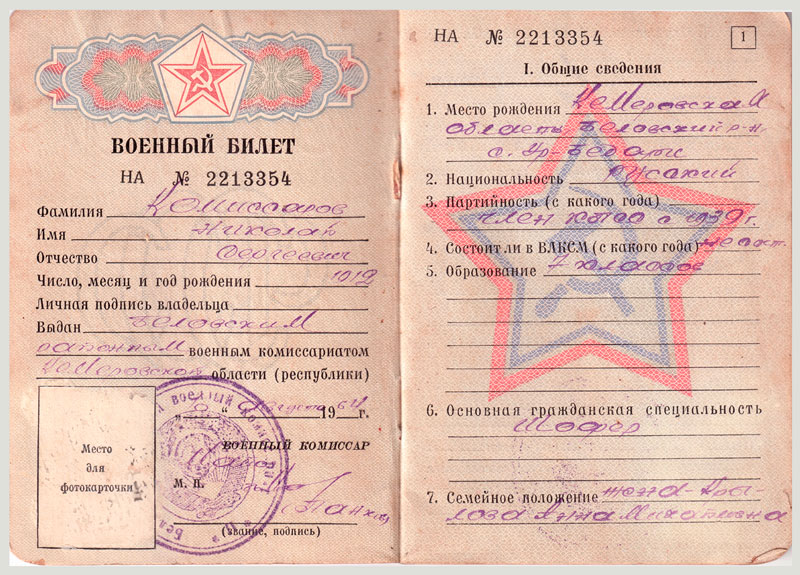 ВОЕННЫЙ БИЛЕТ
НА № 2213354
Фамилия Комиссаров
Имя Николай
Отчество Сергеевич
Число, месяц и год рождения 1912
Личная подпись владельца
Выдан Беловским
районным военным комиссариатом
Кемеровской области (республики)
" " августа 1964 г.
ВОЕННЫЙ КОМИССАР
М. П.
(звание, подпись)
Место
для
фотокарточки
НА № 2213354
1
I. Общие сведения
1. Место рождения Кемеровская
область Беловский р-н
с.
2. Национальность русский
3. Партийность (с какого года)
член КПСС с 1939 г.
4. Состоит ли в ВЛКСМ (с какого года) не сост.
5. Образование 7 классов
6. Основная гражданская специальность
Шофер
7. Семейное положение жена - Кры-
лова Анна Михайловна